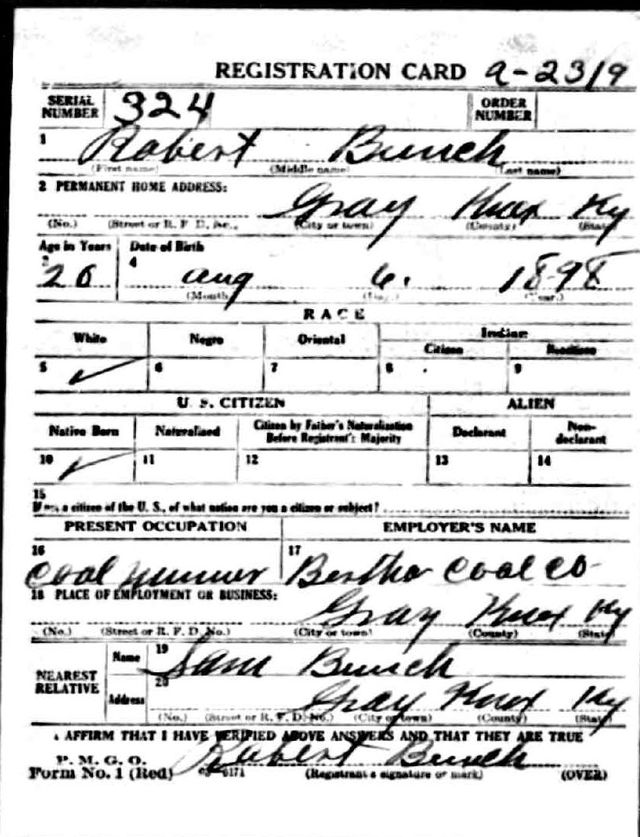 REGISTRATION CARD a-2319
SERIAL NUMBER 324 ORDER NUMBER
1 Robert Bunch
(First name) (Middle name) (Last name)
2 PERMANENT HOME ADDRESS:
Gray Knox Ky
(No.) (Street or R. F. D. No., (City or town) (County) (State)
Age in Years Date of Birth
3 20 4 Aug 6. 1898
(Month) (Day.) (Year.)
RACE
White Negro Oriental Indian
Citizen
5 ✓ 6 7 8 9
U. S. CITIZEN ALIEN
Native Born Naturalized Citizen by Father's Naturalization Before Registrant's Majority Declarant Non-declarant
10 ✓ 11 12 13 14
15
If not a citizen of the U. S., of what nation are you a citizen or subject?
PRESENT OCCUPATION EMPLOYER'S NAME
16 Coal 17 Bertha Coal Co
18 PLACE OF EMPLOYMENT OR BUSINESS:
Gray Knox Ky
(No.) (Street or R. F. D. No.) (City or town) (County) (State)
NEAREST RELATIVE Name 19 Sam Bunch
Address 20 Gray Knox Ky
(No.) (Street or R. F. D. No.) (City or town) (County) (State)
I AFFIRM THAT I HAVE VERIFIED ABOVE ANSWERS AND THAT THEY ARE TRUE
P. M. G. O.
Form No. 1 (Red) Robert Bunch
(Registrant's signature or mark) (OVER)